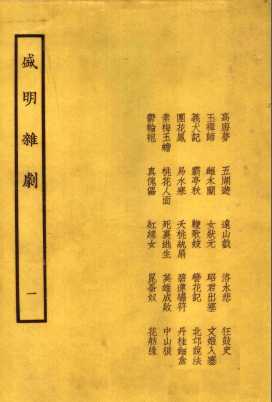 高唐夢　五湖遊　遠山戲　洛水悲　狂鼓史
玉禪師　雌木蘭　女狀元　昭君出塞　文姬入塞
義犬記　霸亭秋　鞭歌妓　簪花記　北邙說法
團花鳳　易水寒　夭桃紈扇　碧蓮繡符　丹桂鈿盒
素梅玉蟾　桃花人面　死裏逃生　英雄成敗　中山狼
鬱輪袍　真傀儡　紅線女　崑崙奴　花舫緣
盛明雜劇　一